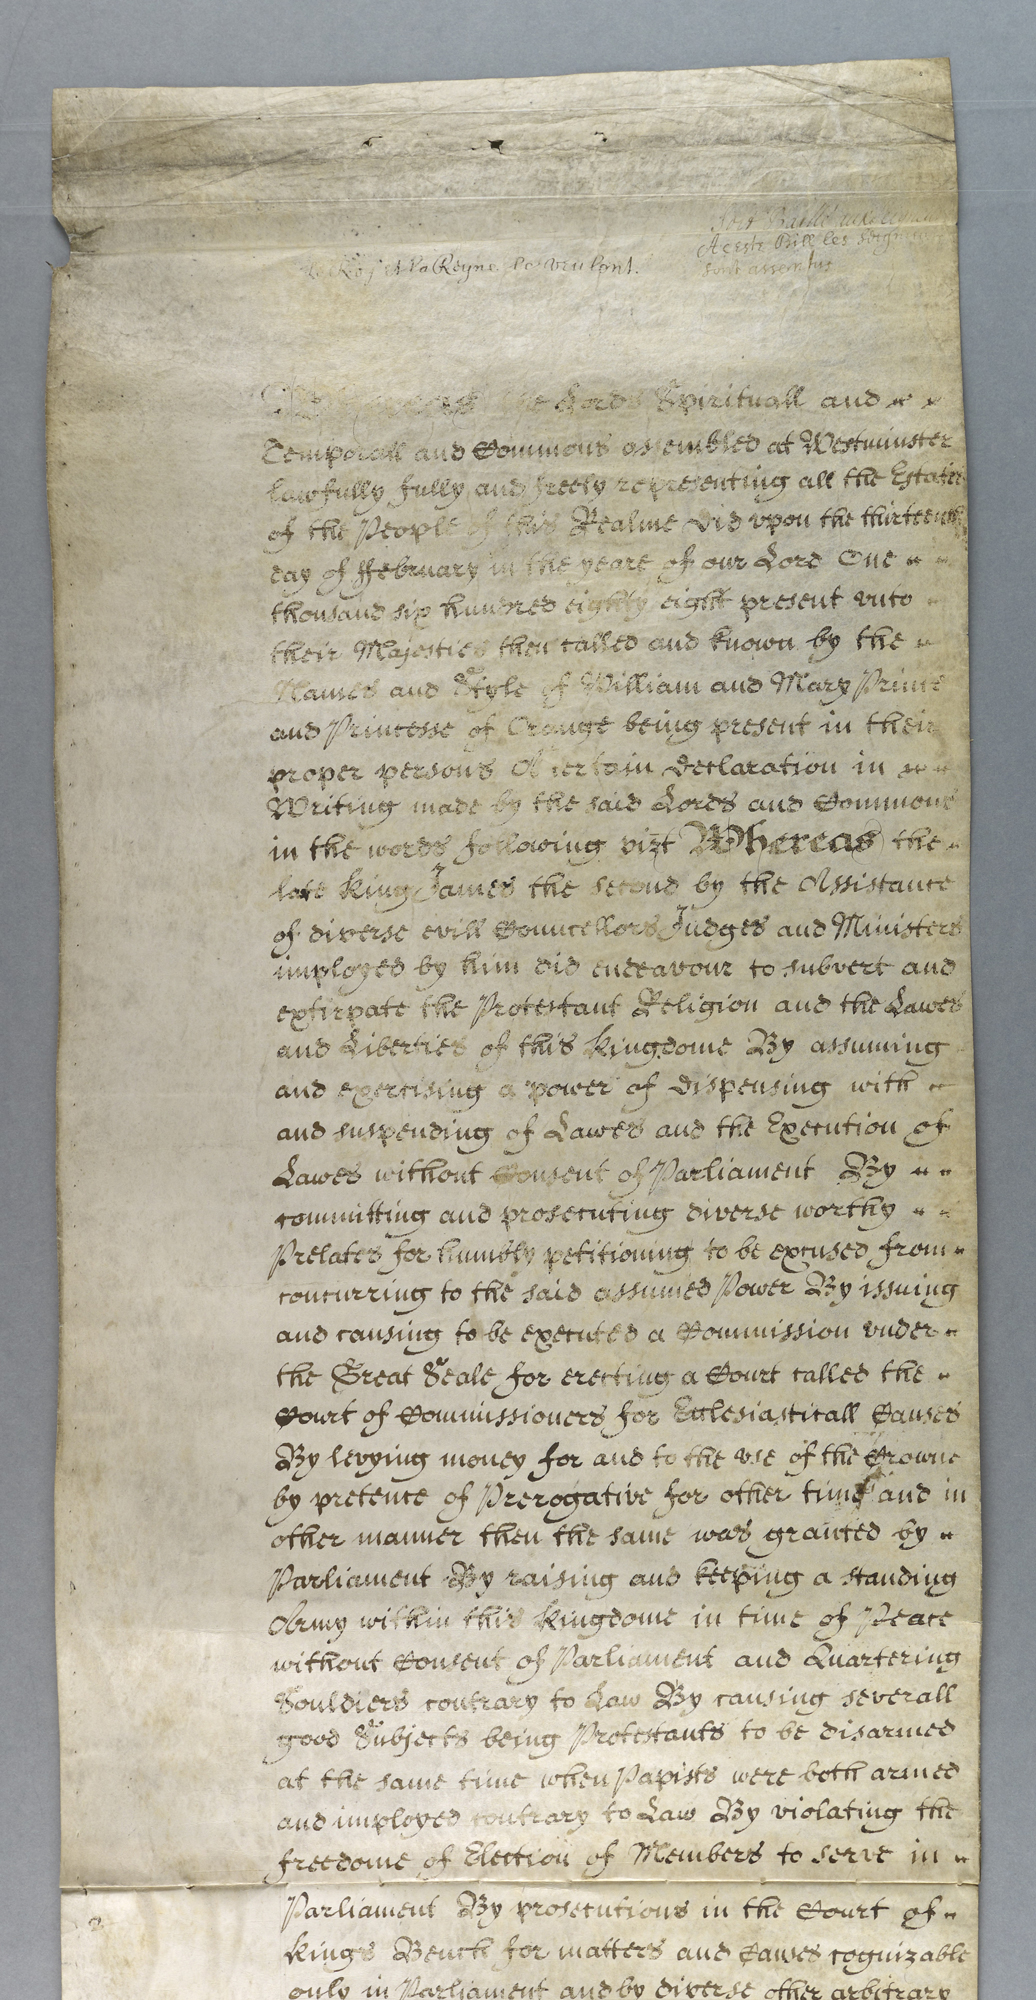 Soit Baillé aux
A ceste Bill les Seign
sont assentus
Le Roy et la Reyne le veulent.
Whereas the Lords Spirituall and
Temporall and Commons assembled at Westminster
lawfully fully and freely representing all the Estates
of the People of this Realme did vpon the thirteenth
day of ffebruary in the yeare of our Lord One
thousand six hundred eighty eight present vnto
their Majesties then called and known by the
Names and Style of William and Mary Prince
and Princesse of Orange being present in their
proper persons A certain Declaration in
Writing made by the said Lords and Commons
in the words following vizt Whereas the
late King James the second by the Assistance
of diverse evill Councellors Judges and Ministers
imployed by him did endeavour to subvert and
extirpate the Protestant Religion and the Lawes
and Liberties of this Kingdome By assuming
and exercising a power of dispensing with
and suspending of Lawes and the Execution of
Lawes without Consent of Parliament By
committing and prosecuting diverse worthy
Prelates for humbly petitioning to be excused from
concurring to the said assumed Power By issuing
and causing to be executed a Commission vnder
the Great Seale for erecting a Court called the
Court of Commissioners for Ecclesiasticall Causes
By levying money for and to the vse of the Crowne
by pretence of Prerogative for other time and in
other manner then the same was granted by
Parliament By raising and keeping a standing
Army within this Kingdome in time of Peace
without Consent of Parliament and Quartering
Souldiers contrary to Law By causing severall
good Subjects being Protestants to be disarmed
at the same time when Papists were both armed
and imployed contrary to Law By violating the
freedome of Election of Members to serve in
Parliament By prosecutions in the Court of
Kings Bench for matters and Causes cognizable
only in Parliament and by diverse other arbitrary